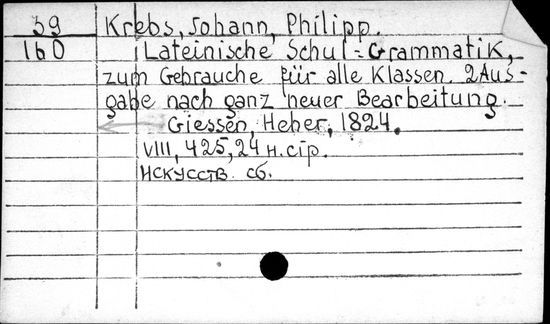 39 Krebs, Johann, Philipp.
160 Lateinische Schul=Grammatik,
zum Gebrauche für alle Klassen. 2 Aus-
gabe nach ganz neuer Bearbeitung.
Giessen, Heher, 1824.
VIII, 425, 24 н. стр.
Искусств. сб.